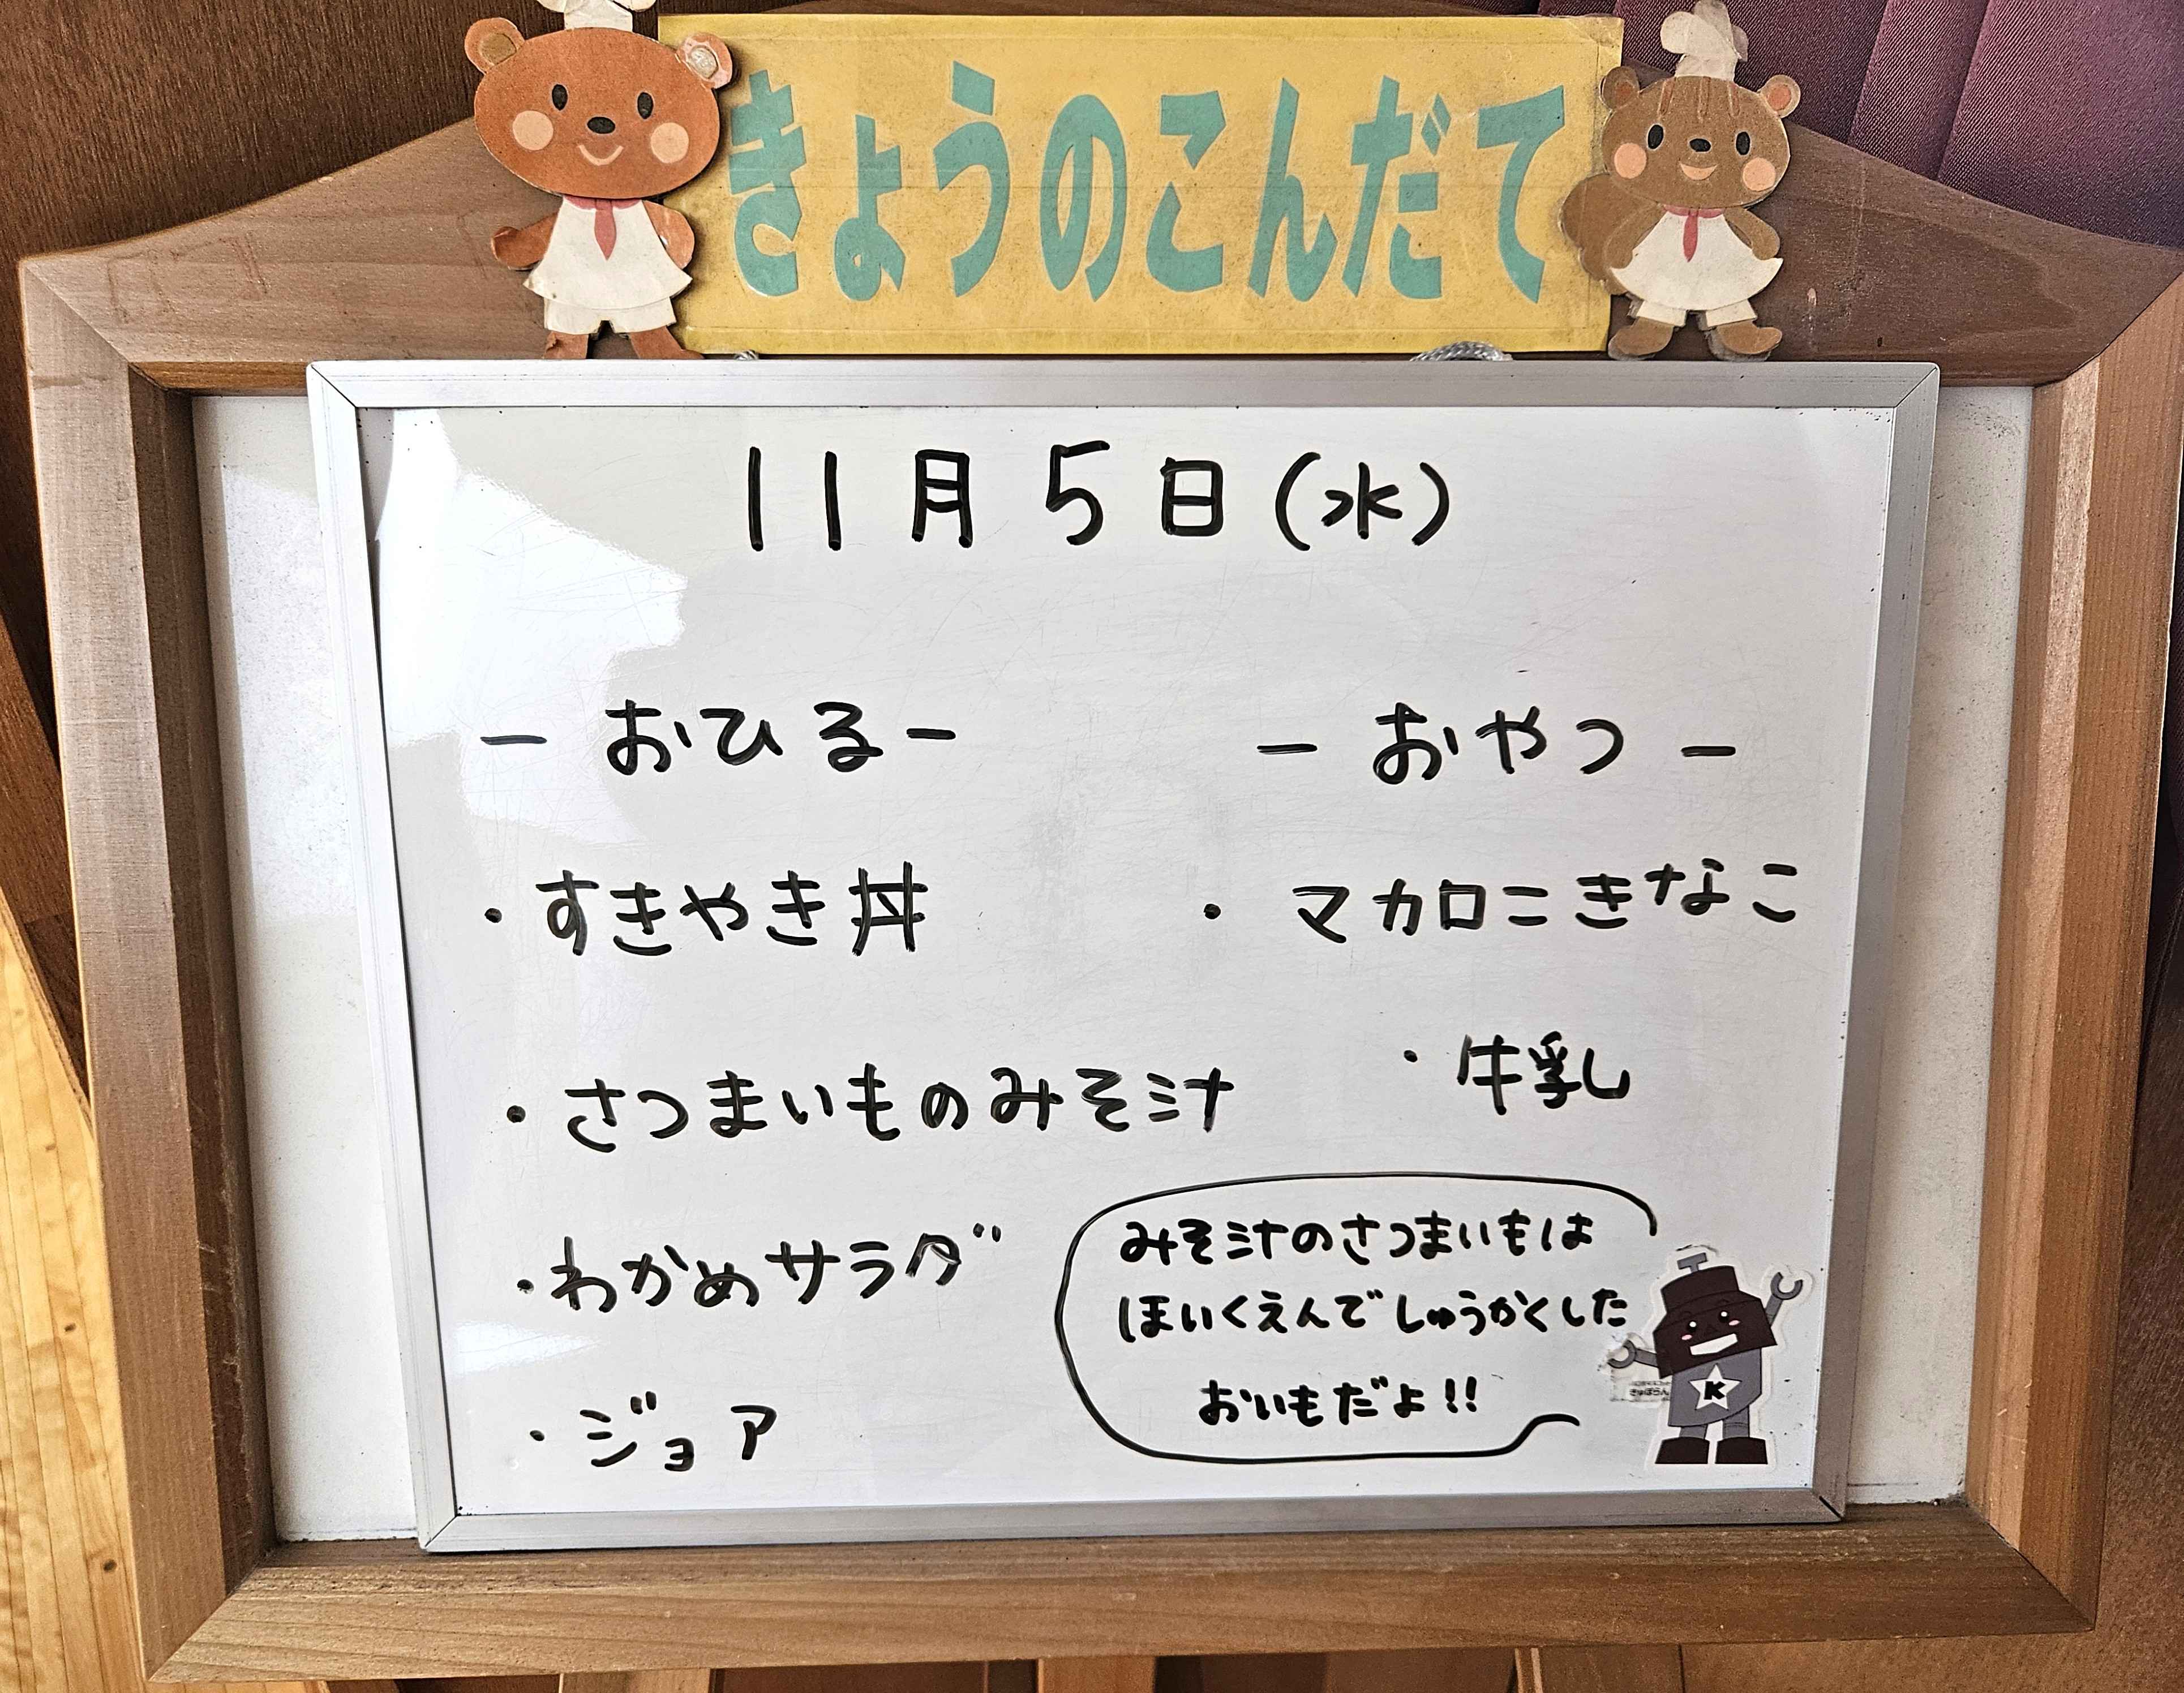 きょうのこんだて
11月5日(水)
- おひる -
・すきやき丼
・さつまいものみそ汁
・わかめサラダ
・ジョア
- おやつ -
・マカロニきなこ
・牛乳
みそ汁のさつまいもは
ほいくえんでしゅうかくした
おいもだよ!!
K